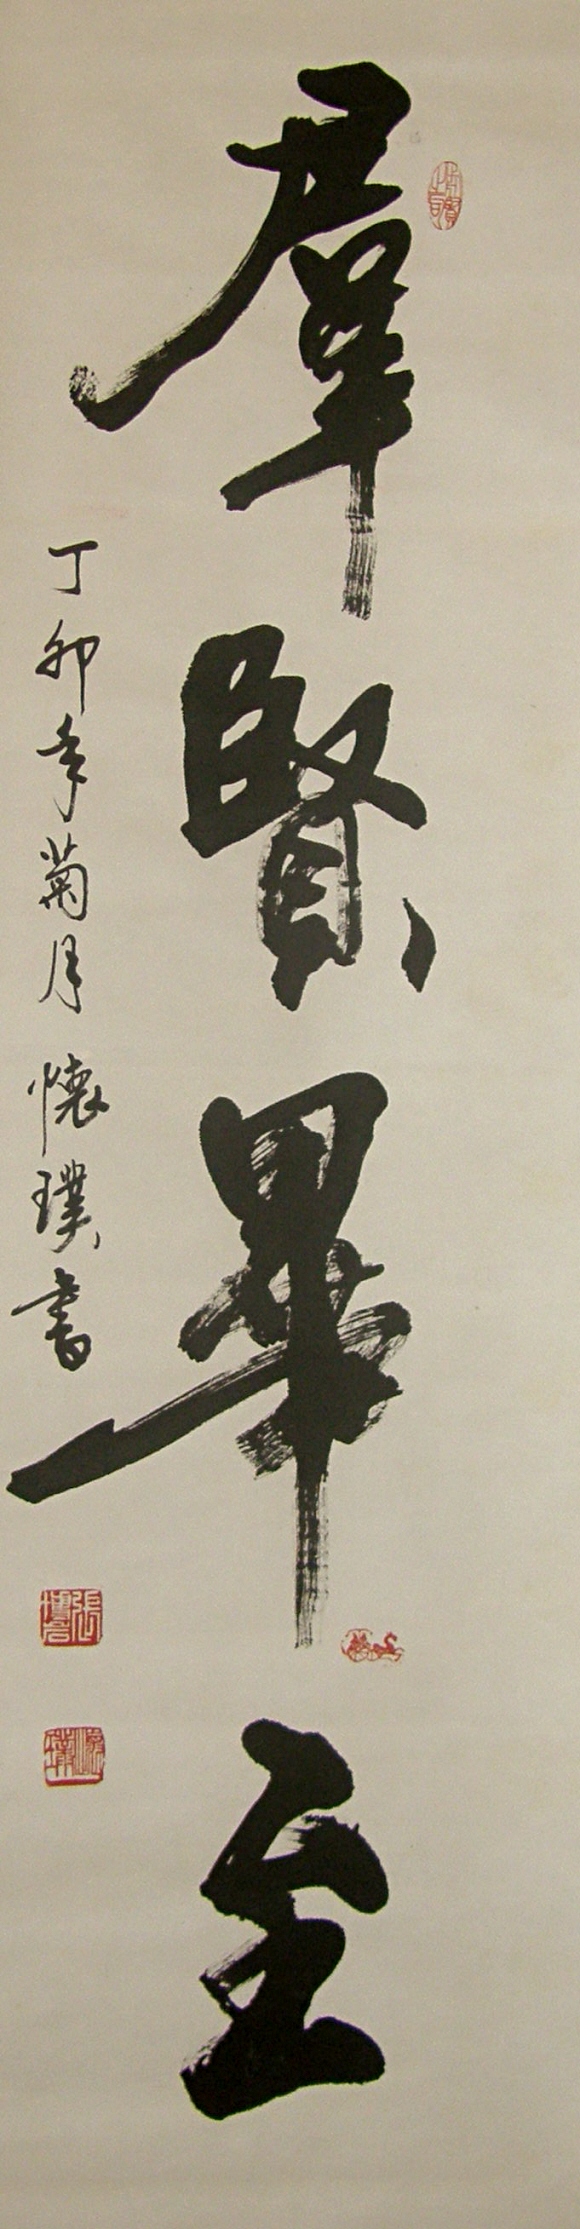 羣賢畢至
丁卯年菊月懷璞書